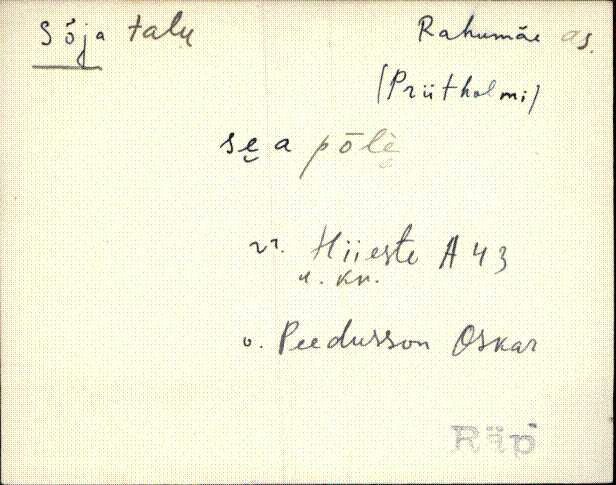 Sõja talu Rahumäe as.
(Priitholmi)
se̮ a põlè
vr. Hiieste A 43
u. kn.
o. Peedusson Oskar
Räp